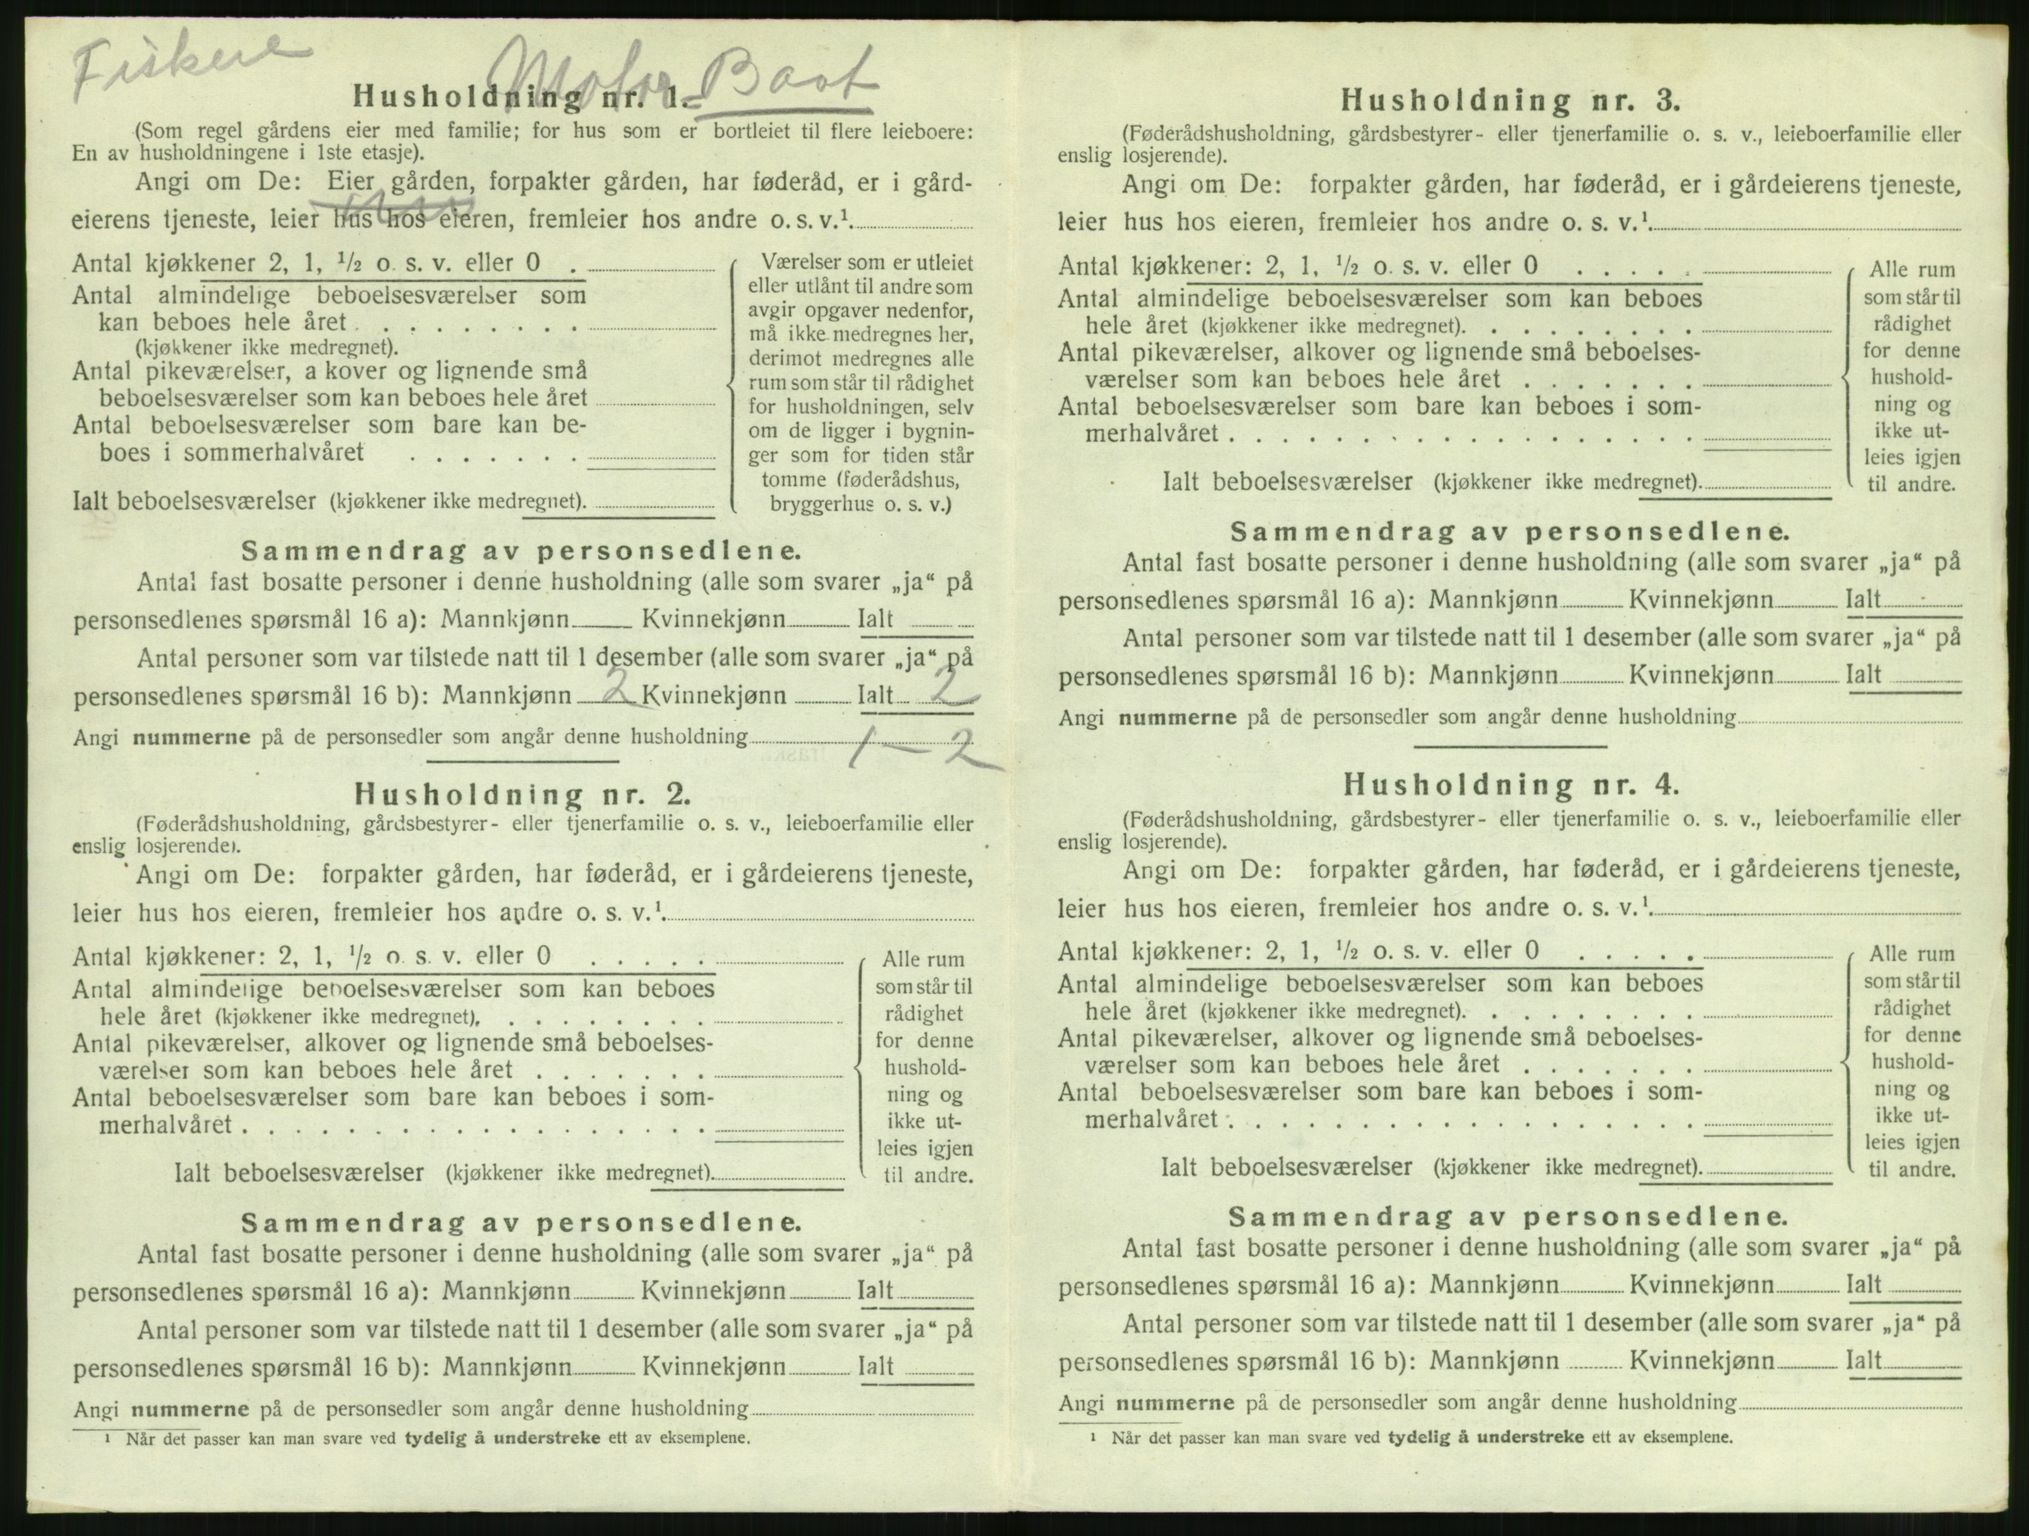 Fiskere
Motor-Baat
Husholdning nr. 1.
(Som regel gårdens eier med familie; for hus som er bortleiet til flere leieboere:
En av husholdningene i 1ste etasje).
Angi om De: Eier gården, forpakter gården, har føderåd, er i gård-
eierens tjeneste, leier hus hos eieren, fremleier hos andre o. s. v.¹.
Antal kjøkkener 2, 1, ½ o. s. v. eller 0 .
Antal almindelige beboelsesværelser som
kan beboes hele året . . . . . . . . .
(kjøkkener ikke medregnet).
Antal pikeværelser, a kover og lignende små
beboelsesværelser som kan beboes hele året
Antal beboelsesværelser som bare kan be-
boes i sommerhalvåret . . . . . . .
Ialt beboelsesværelser (kjøkkener ikke medregnet).
Værelser som er utleiet
eller utlånt til andre som
avgir opgaver nedenfor,
må ikke medregnes her,
derimot medregnes alle
rum som står til rådighet
for husholdningen, selv
om de ligger i bygnin-
ger som for tiden står
tomme (føderådshus,
bryggerhus o. s. v.)
Sammendrag av personsedlene.
Antal fast bosatte personer i denne husholdning (alle som svarer „ja“ på
personsedlenes spørsmål 16 a): Mannkjønn Kvinnekjønn Ialt
Antal personer som var tilstede natt til 1 desember (alle som svarer „ja“ på
personsedlenes spørsmål 16 b): Mannkjønn 2 Kvinnekjønn Ialt 2
Angi nummerne på de personsedler som angår denne husholdning 1 – 2
Husholdning nr. 2.
(Føderådshusholdning, gårdsbestyrer- eller tjenerfamilie o. s. v., leieboerfamilie eller
enslig losjerende).
Angi om De: forpakter gården, har føderåd, er i gårdeierens tjeneste,
leier hus hos eieren, fremleier hos andre o. s. v.¹.
Antal kjøkkener: 2, 1, ½ o. s. v. eller 0 . . . . .
Antal almindelige beboelsesværelser som kan beboes
hele året (kjøkkener ikke medregnet). . . . . . . . .
Antal pikeværelser, alkover og lignende små beboelses-
værelser som kan beboes hele året . . . . . . .
Antal beboelsesværelser som bare kan beboes i som-
merhalvåret . . . . . . . . . . . . . . . . . .
Ialt beboelsesværelser (kjøkkener ikke medregnet).
Alle rum
som står til
rådighet
for denne
hushold-
ning og
ikke ut-
leies igjen
til andre.
Sammendrag av personsedlene.
Antal fast bosatte personer i denne husholdning (alle som svarer „ja“ på
personsedlenes spørsmål 16 a): Mannkjønn Kvinnekjønn Ialt
Antal personer som var tilstede natt til 1 desember (alle som svarer „ja“ på
personsedlenes spørsmål 16 b): Mannkjønn Kvinnekjønn Ialt
Angi nummerne på de personsedler som angår denne husholdning
¹ Når det passer kan man svare ved tydelig å understreke ett av eksemplene.
Husholdning nr. 3.
(Føderådshusholdning, gårdsbestyrer- eller tjenerfamilie o. s. v., leieboerfamilie eller
enslig losjerende).
Angi om De: forpakter gården, har føderåd, er i gårdeierens tjeneste,
leier hus hos eieren, fremleier hos andre o. s. v.¹.
Antal kjøkkener: 2, 1, ½ o. s. v. eller 0 . . . . .
Antal almindelige beboelsesværelser som kan beboes
hele året (kjøkkener ikke medregnet). . . . . . . . .
Antal pikeværelser, alkover og lignende små beboelses-
værelser som kan beboes hele året . . . . . . .
Antal beboelsesværelser som bare kan beboes i som-
merhalvåret . . . . . . . . . . . . . . . . . .
Ialt beboelsesværelser (kjøkkener ikke medregnet).
Alle rum
som står til
rådighet
for denne
hushold-
ning og
ikke ut-
leies igjen
til andre.
Sammendrag av personsedlene.
Antal fast bosatte personer i denne husholdning (alle som svarer „ja“ på
personsedlenes spørsmål 16 a): Mannkjønn Kvinnekjønn Ialt
Antal personer som var tilstede natt til 1 desember (alle som svarer „ja“ på
personsedlenes spørsmål 16 b): Mannkjønn Kvinnekjønn Ialt
Angi nummerne på de personsedler som angår denne husholdning
Husholdning nr. 4.
(Føderådshusholdning, gårdsbestyrer- eller tjenerfamilie o. s. v., leieboerfamilie eller
enslig losjerende).
Angi om De: forpakter gården, har føderåd, er i gårdeierens tjeneste,
leier hus hos eieren, fremleier hos andre o. s. v.¹.
Antal kjøkkener: 2, 1, ½ o. s. v. eller 0 . . . . .
Antal almindelige beboelsesværelser som kan beboes
hele året (kjøkkener ikke medregnet). . . . . . . . .
Antal pikeværelser, alkover og lignende små beboelses-
værelser som kan beboes hele året . . . . . . .
Antal beboelsesværelser som bare kan beboes i som-
merhalvåret . . . . . . . . . . . . . . . . . .
Ialt beboelsesværelser (kjøkkener ikke medregnet).
Alle rum
som står til
rådighet
for denne
hushold-
ning og
ikke ut-
leies igjen
til andre.
Sammendrag av personsedlene.
Antal fast bosatte personer i denne husholdning (alle som svarer „ja“ på
personsedlenes spørsmål 16 a): Mannkjønn Kvinnekjønn Ialt
Antal personer som var tilstede natt til 1 desember (alle som svarer „ja“ på
personsedlenes spørsmål 16 b): Mannkjønn Kvinnekjønn Ialt
Angi nummerne på de personsedler som angår denne husholdning
¹ Når det passer kan man svare ved tydelig å understreke ett av eksemplene.